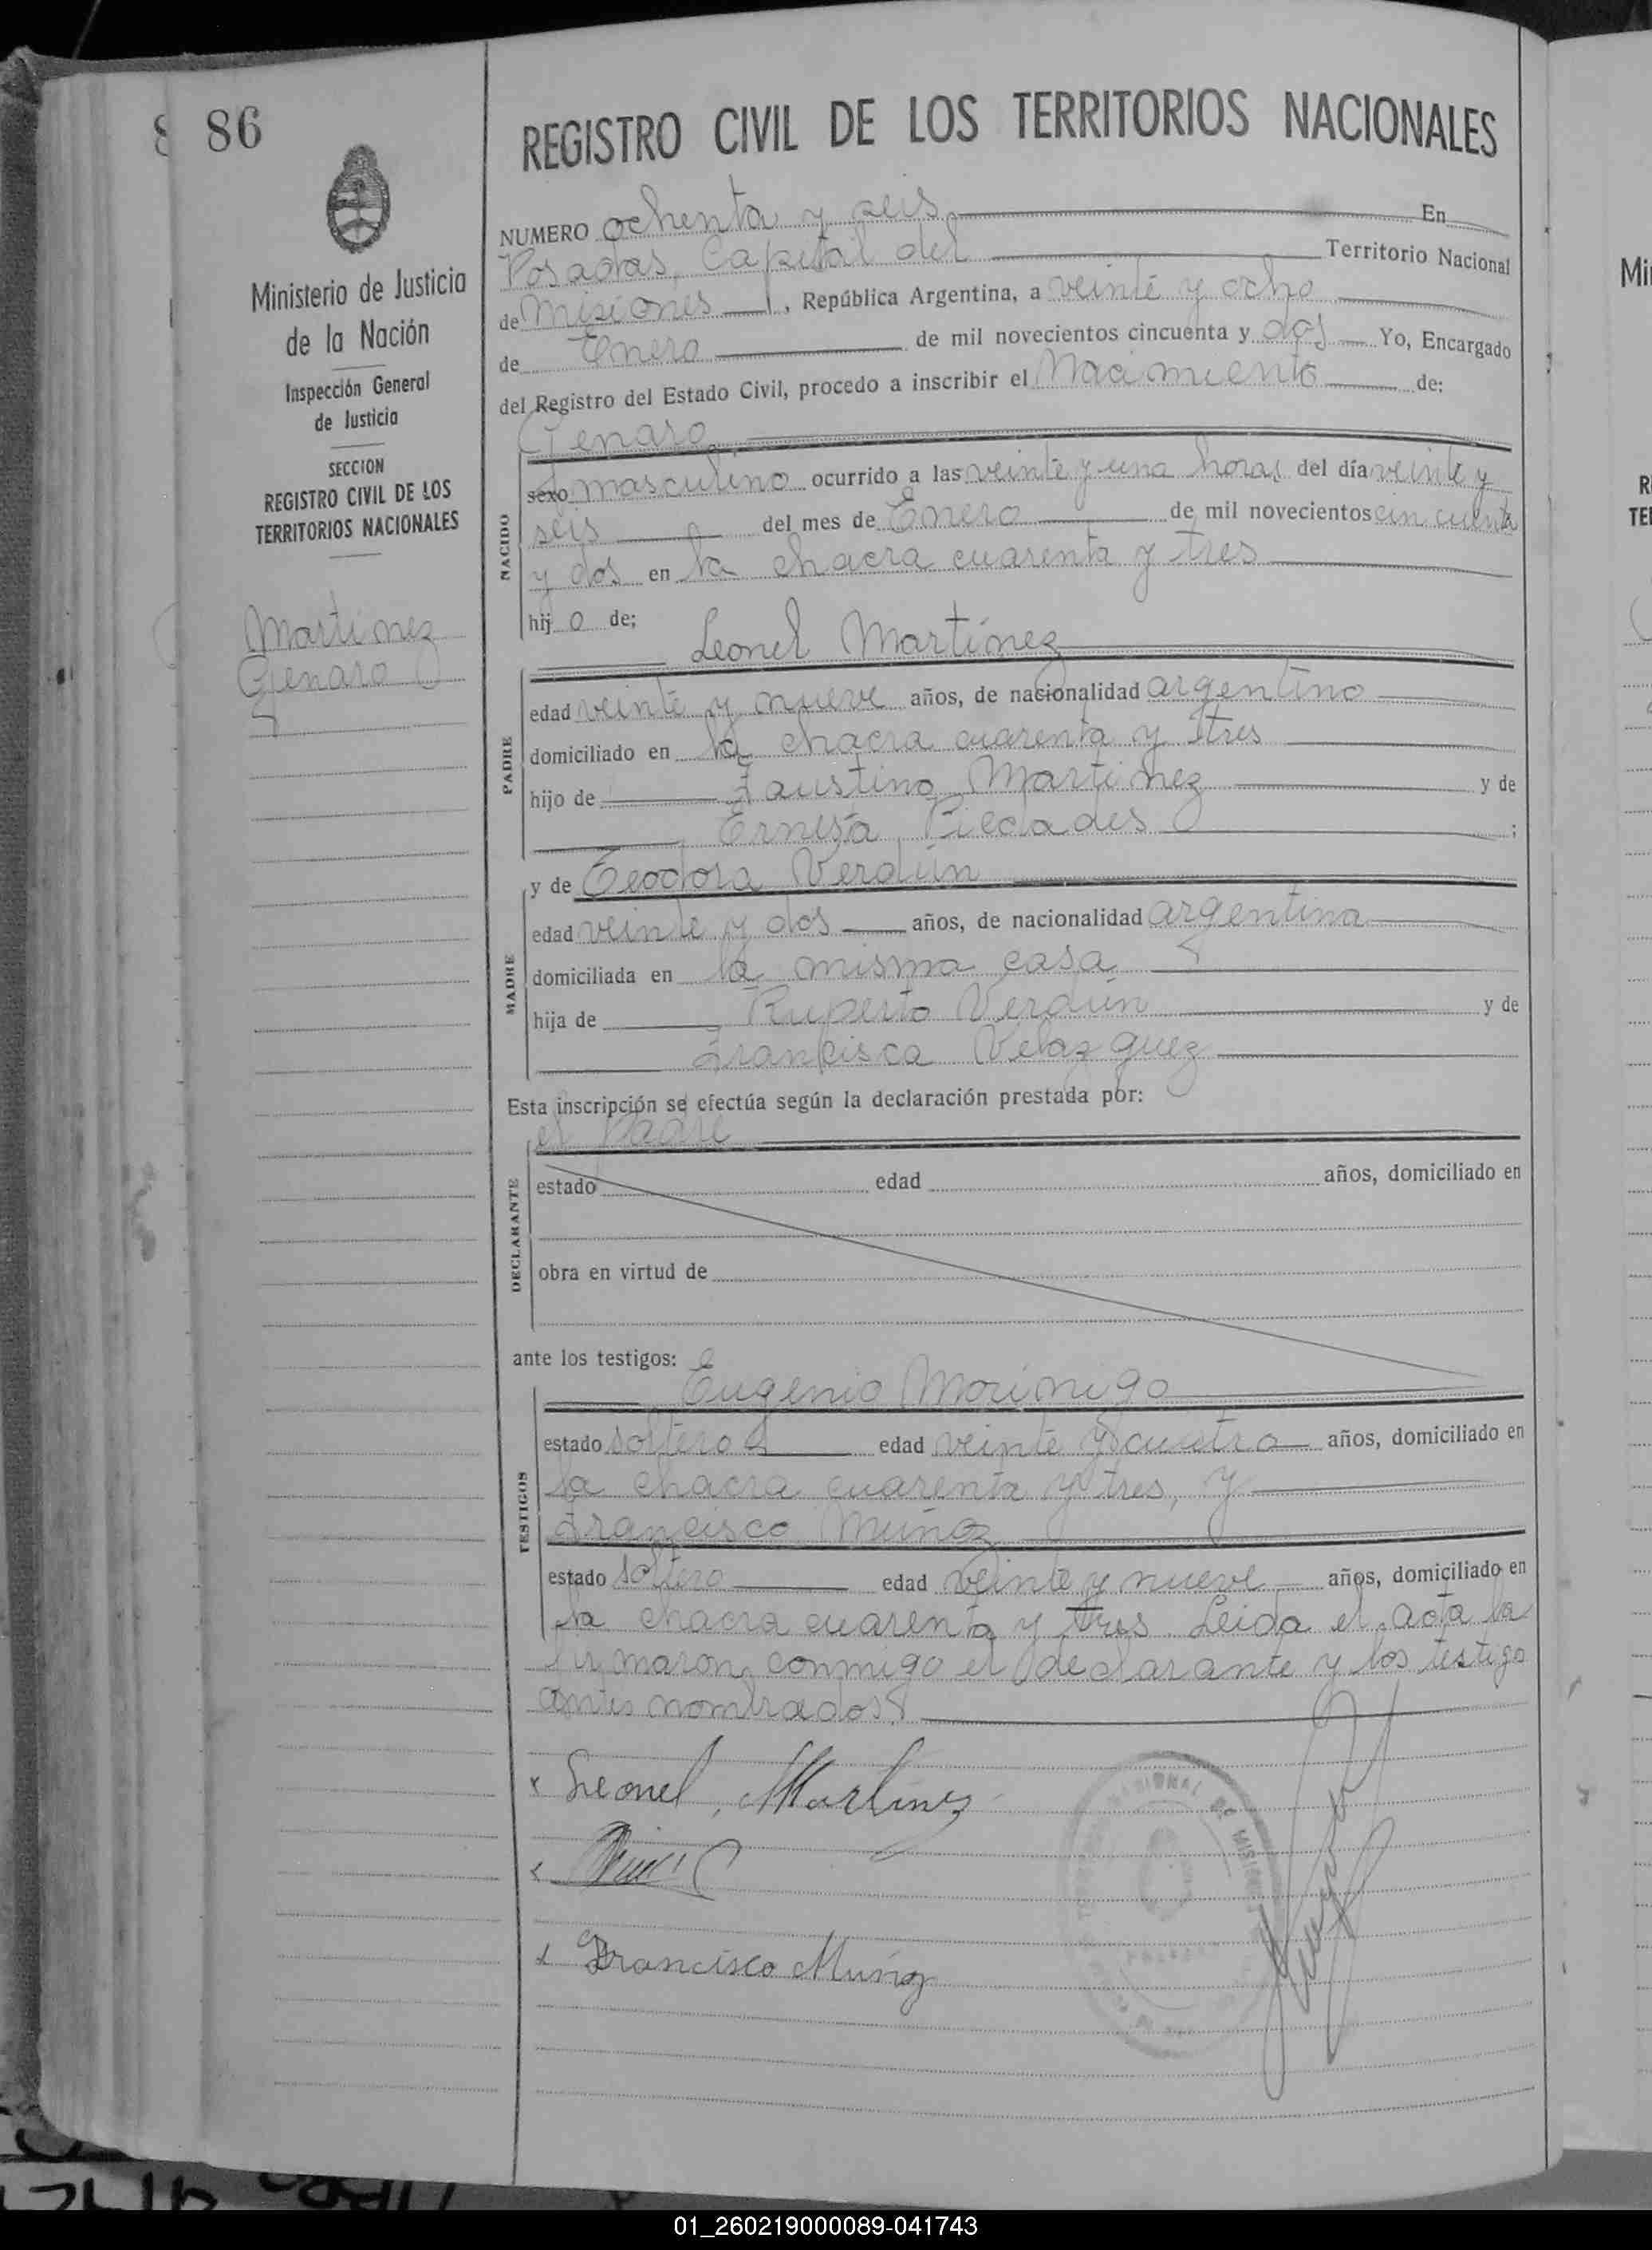 86
REGISTRO CIVIL DE LOS TERRITORIOS NACIONALES
Ministerio de Justicia
de la Nación
Inspección General
de Justicia
SECCION
REGISTRO CIVIL DE LOS
TERRITORIOS NACIONALES
Martinez
Genaro
NUMERO ochenta y seis En
Posadas, Capital del Territorio Nacional
de Misiones, República Argentina, a veinte y ocho
de Enero de mil novecientos cincuenta y dos Yo, Encargado
del Registro del Estado Civil, procedo a inscribir el Nacimiento de:
Genaro
NACIDO
sexo masculino ocurrido a las veinte y una horas del día veinte y
seis del mes de Enero de mil novecientos cincuenta
y dos en la chacra cuarenta y tres
hijo de;
Leonel Martínez
PADRE
edad veinte y nueve años, de nacionalidad argentino
domiciliado en la chacra cuarenta y tres
hijo de Faustino Martinez y de
Ernesta Piedades ;
y de Teodora Verdún
MADRE
edad veinte y dos años, de nacionalidad argentina
domiciliada en la misma casa
hija de Ruperto Verdún y de
Francisca Velazquez
Esta inscripción se efectúa según la declaración prestada por:
el padre
DECLARANTE
estado edad años, domiciliado en
obra en virtud de
ante los testigos:
Eugenio Morinigo
TESTIGOS
estado soltero edad veinte y cuatro años, domiciliado en
la chacra cuarenta y tres, y
Francisco Muñoz
estado soltero edad veinte y nueve años, domiciliado en
la chacra cuarenta y tres. Leida el acta la
firmaron conmigo el declarante y los testigo
antes nombrados
x Leonel Martinez
x Francisco Muñoz
01_260219000089-041743